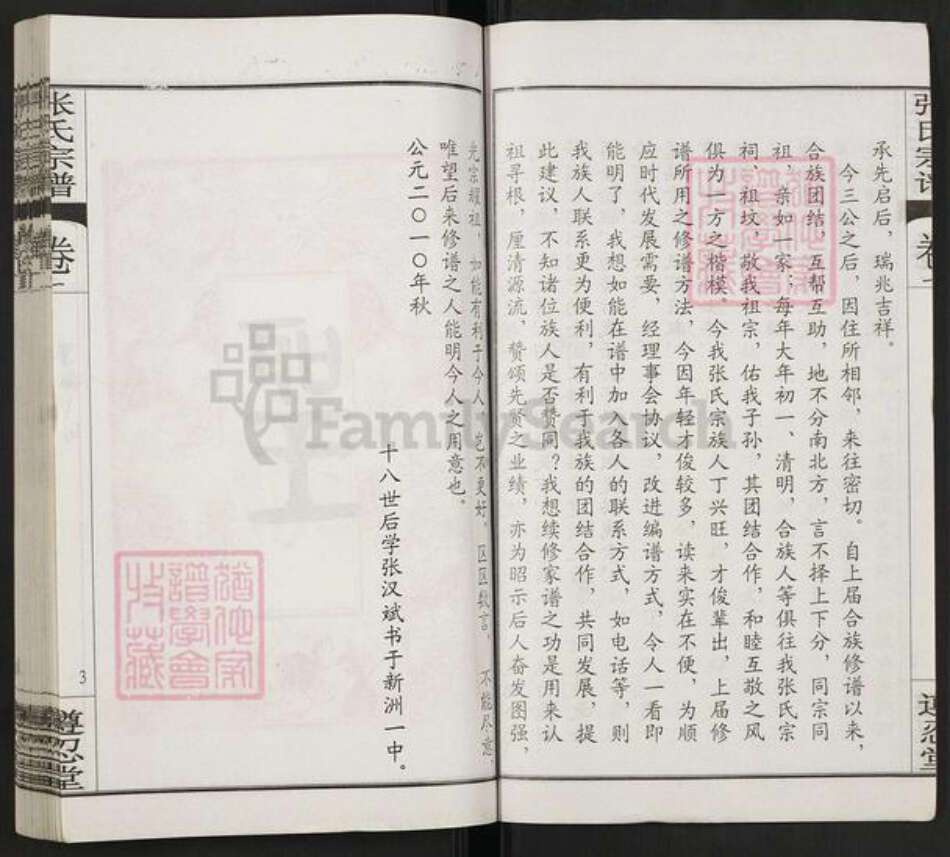 张氏宗谱
卷一
承先启后，瑞兆吉祥。
今三公之后，因住所相邻，来往密切。自上届合族修谱以来，
合族团结，互帮互助，地不分南北方，言不择上下分，同宗同
祖，亲如一家；每年大年初一、清明，合族人等俱往我张氏宗
祠、祖坟，敬我祖宗，佑我子孙，其团结合作，和睦互敬之风
俱为一方之楷模。今我张氏宗族人丁兴旺，才俊辈出，上届修
谱所用之修谱方法，今因年轻才俊较多，读来实在不便，为顺
应时代发展需要，经理事会协议，改进编谱方式，令人一看即
能明了，我想如能在谱中加入各人的联系方式，如电话等，则
我族人联系更为便利，有利于我族的团结合作，共同发展，提
此建议，不知诸位族人是否赞同？我想续修家谱之功是用来认
祖寻根，厘清源流，赞颂先贤之业绩，亦为昭示后人奋发图强，
光宗耀祖，如能有利于今人，岂不更好，区区数言，不能尽意，
唯望后来修谱之人能明今人之用意也。
十八世后学张汉斌书于新洲一中。
公元二〇一〇年秋
张氏宗谱
卷一
3
遵忍堂
遵忍堂
譜學會
收藏
FamilySearch